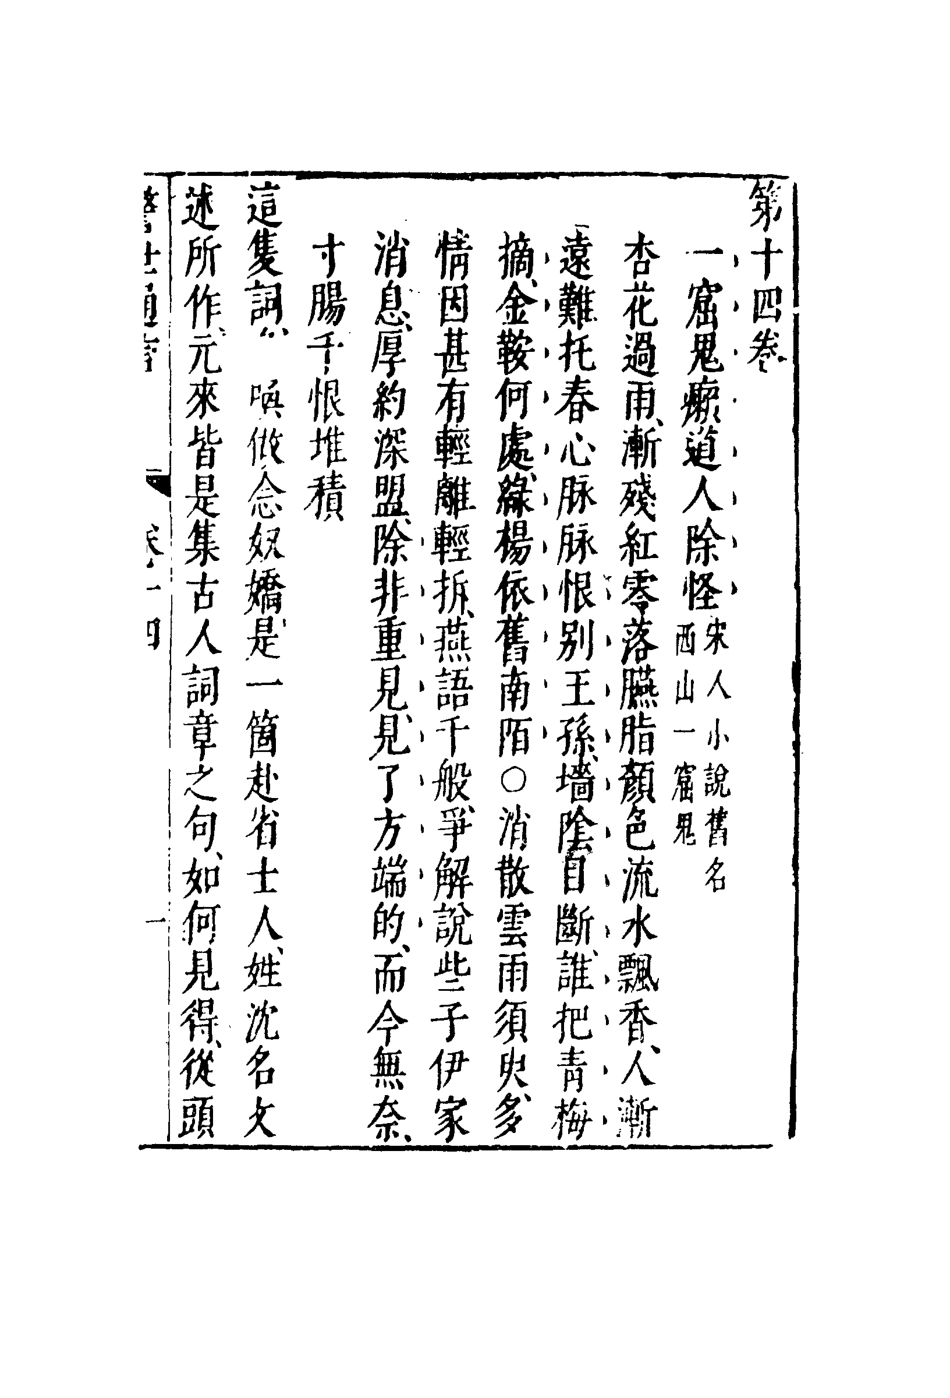 第十四卷
一窟鬼癩道人除怪宋人小說舊名西山一窟鬼
杏花過雨、漸殘紅零落臙脂顏色流水飄香、人漸
遠難托春心脉脉恨别王孫、墻陰目斷、誰把青梅
摘、金鞍何處、綠楊依舊南陌○消散雲雨須臾、多
情因甚有輕離輕拆、燕語千般、爭解說些子伊家
消息、厚約深盟、除非重見、見了方端的、而今無奈、
寸腸千恨堆積
這隻詞、喚做念奴嬌、是一箇赴省士人、姓沈名文
述所作、元來皆是集古人詞章之句、如何見得、從頭
警世通言 卷十四 一